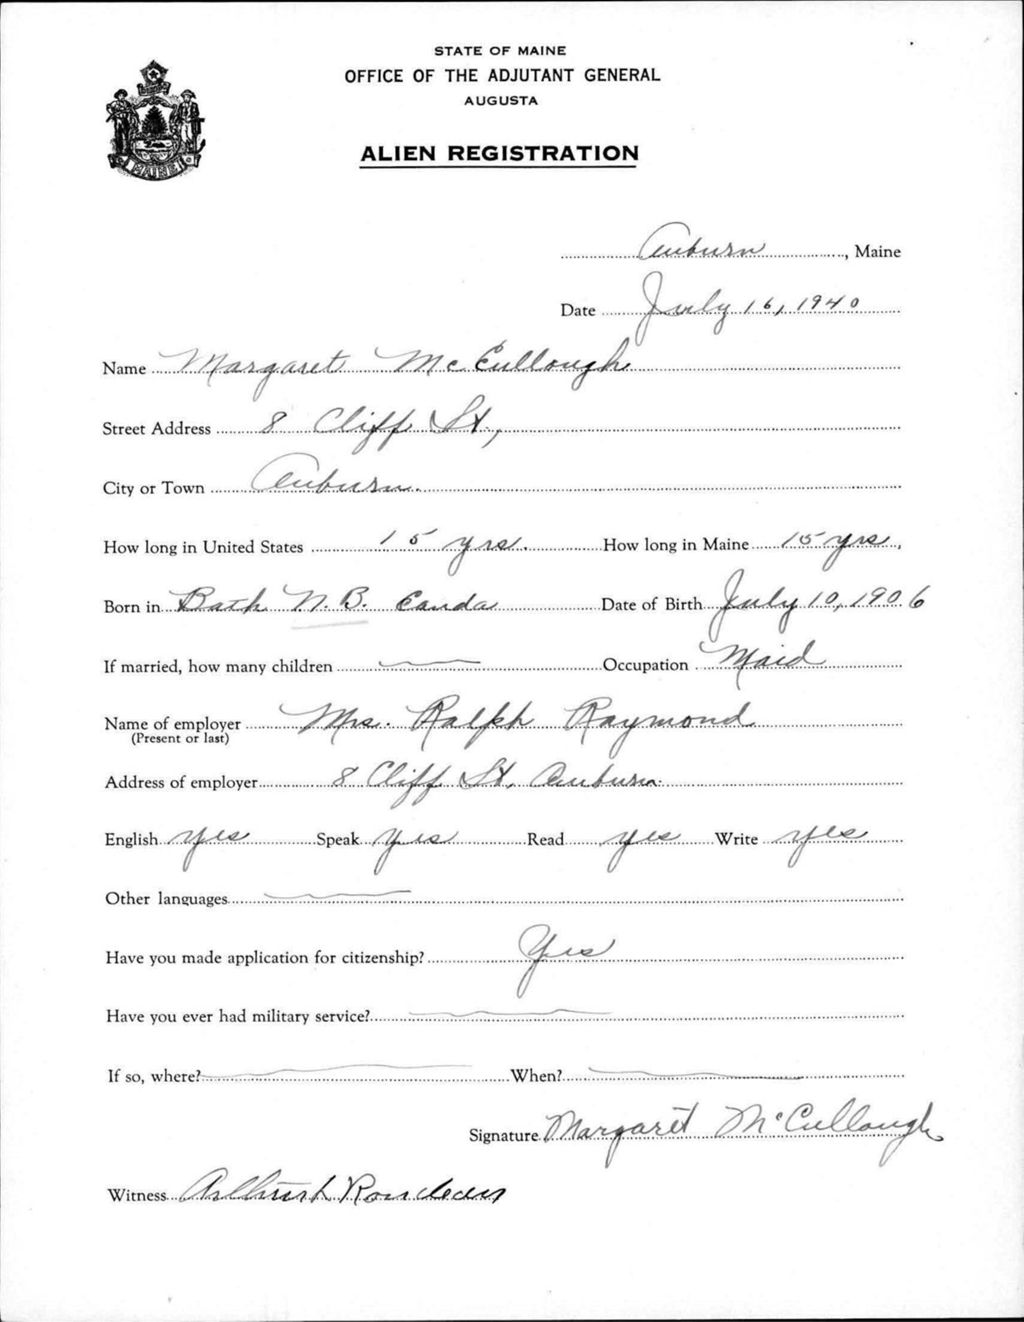 STATE OF MAINE
OFFICE OF THE ADJUTANT GENERAL
AUGUSTA
ALIEN REGISTRATION
MAINE
Auburn, Maine
Date July 16, 1940
Name Margaret McCullough
Street Address 8 Cliff St,
City or Town Auburn.
How long in United States 15 yrs. How long in Maine 15 yrs,
Born in Bath N.B. Canda Date of Birth July 10, 1906
If married, how many children Occupation Maid
Name of employer Mrs. Ralph Raymond
(Present or last)
Address of employer 8 Cliff St, Auburn.
English yes Speak yes Read yes Write yes
Other languages
Have you made application for citizenship? Yes
Have you ever had military service?
If so, where? When?
Signature Margaret McCullough
Witness